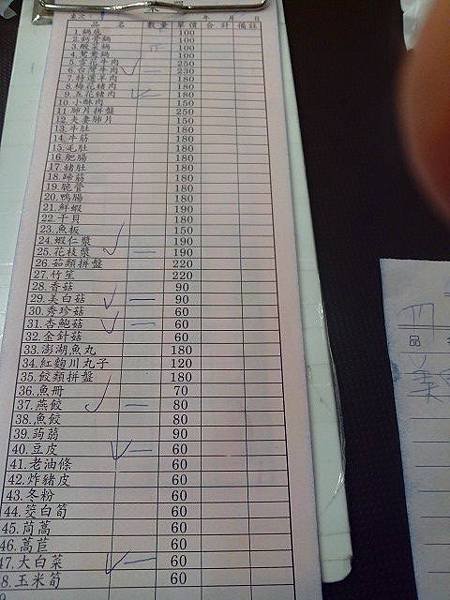 品 名 數量 單價 合計 備註
年 月 日
1.鍋底 100
100
3.酸菜鍋 100
100
250
6.台灣牛肉 一 230
180
8.梅花豬肉 180
180
10.小酥肉 150
11.肺片拼盤 250
12.夫妻肺片 150
13.牛肚 180
14.牛筋 180
15.毛肚 180
16.肥腸 180
17.豬肚 180
18.蹄筋 180
19.脆管 180
20.鴨腸 180
21.鮮蝦 190
22.干貝 180
23.魚板 150
24.蝦仁漿 190
25.花枝漿 一 190
26.菇類拼盤 220
27.竹笙 220
28.香菇 90
29.美白菇 一 90
30.秀珍菇 60
31.杏鮑菇 一 60
32.金針菇 60
33.澎湖魚丸 180
34.紅麴川丸子 120
35.餃類拼盤 180
36.魚冊 70
37.燕餃 一 80
38.魚餃 80
39.蒟蒻 90
40.豆皮 一 60
41.老油條 60
42.炸豬皮 60
43.冬粉 60
44.筊白筍 60
45.茼蒿 60
46.萵苣 60
47.大白菜 一 60
8.玉米筍 60
品